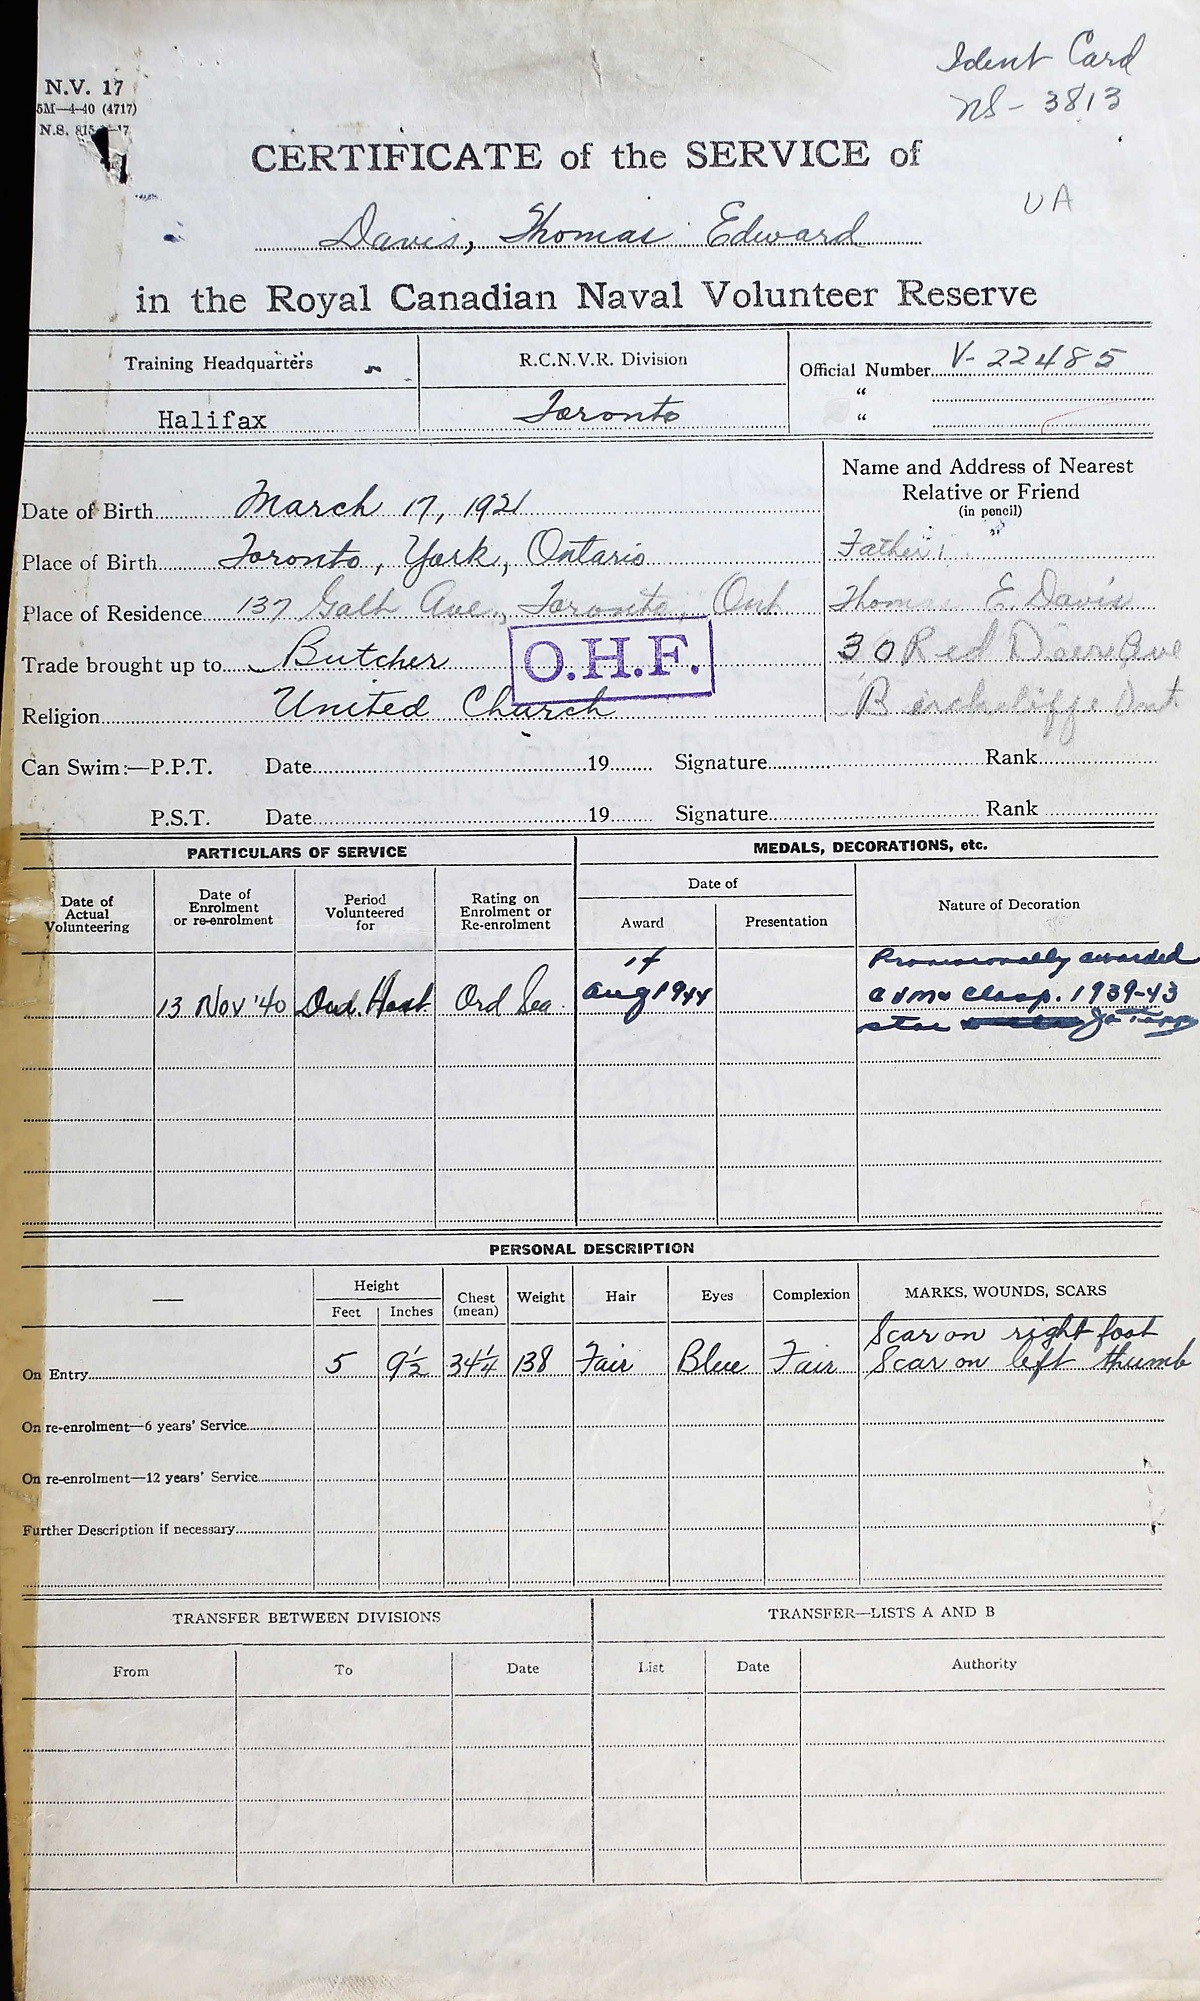 Ident Card
NS-3813
N.V. 17
5M—4-40 (4717)
N.S. 815- -17
CERTIFICATE of the SERVICE of
UA
Davis, Thomas Edward
in the Royal Canadian Naval Volunteer Reserve
Training Headquarters
R.C.N.V.R. Division
Official Number V-22485
"
Halifax
Toronto
"
Name and Address of Nearest
Relative or Friend
(in pencil)
Date of Birth March 17, 1921
Father:
Place of Birth Toronto, York, Ontario
Place of Residence 137 Galt Ave., Toronto, Ont
Thomas E. Davis
O.H.F.
Trade brought up to Butcher
30 Red Deer Ave
Religion United Church
Birchcliffe Ont
Can Swim:—P.P.T. Date 19 Signature Rank
P.S.T. Date 19 Signature Rank
PARTICULARS OF SERVICE
MEDALS, DECORATIONS, etc.
Date of
Actual
Volunteering
Date of
Enrolment
or re-enrolment
Period
Volunteered
for
Rating on
Enrolment or
Re-enrolment
Date of
Award
Presentation
Nature of Decoration
13 Nov '40
Dur. Host.
Ord Sea.
14
Aug 1944
Provisionally awarded
CVM & Clasp. 1939-43
star
PERSONAL DESCRIPTION
—
Height
Feet
Inches
Chest
(mean)
Weight
Hair
Eyes
Complexion
MARKS, WOUNDS, SCARS
Scar on right foot
On Entry 5 9½ 34¼ 138 Fair Blue Fair Scar on left thumb
On re-enrolment—6 years' Service
On re-enrolment—12 years' Service
Further Description if necessary
TRANSFER BETWEEN DIVISIONS
TRANSFER—LISTS A AND B
From
To
Date
List
Date
Authority